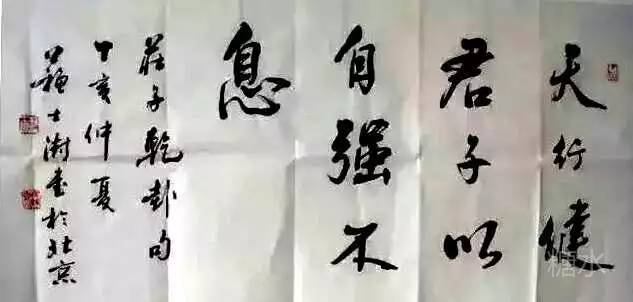 天行健
君子以
自强不
息
莊子乾卦句
丁亥仲夏
蘇士澍書於北京
糖水